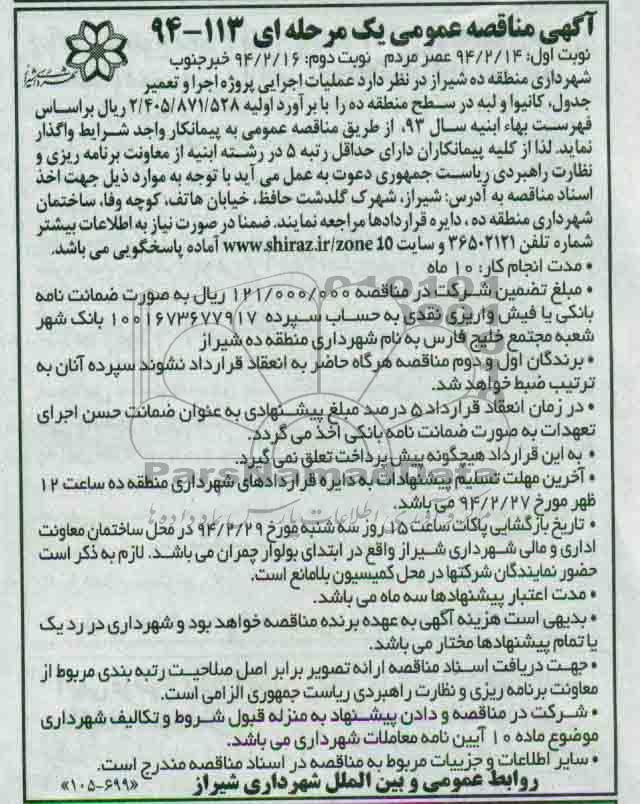 آگهی مناقصه عمومی یک مرحله ای ۱۱۳-۹۴
نوبت اول: ۹۴/۲/۱۴ عصر مردم نوبت دوم: ۹۴/۲/۱۶ خبرجنوب
شهرداری منطقه ده شیراز در نظر دارد عملیات اجرایی پروژه اجرا و تعمیر
جدول، کانیوا و لبه در سطح منطقه ده را با برآورد اولیه ۲/۴۰۵/۸۷۱/۵۲۸ ریال براساس
فهرست بهاء ابنیه سال ۹۳، از طریق مناقصه عمومی به پیمانکار واجد شرایط واگذار
نماید. لذا از کلیه پیمانکاران دارای حداقل رتبه ۵ در رشته ابنیه از معاونت برنامه ریزی و
نظارت راهبردی ریاست جمهوری دعوت به عمل می آید با توجه به موارد ذیل جهت اخذ
اسناد مناقصه به آدرس: شیراز، شهرک گلدشت حافظ، خیابان هاتف، کوچه وفا، ساختمان
شهرداری منطقه ده، دایره قراردادها مراجعه نمایند. ضمنا در صورت نیاز به اطلاعات بیشتر
شماره تلفن ۳۶۵۰۲۱۲۱ و سایت www.shiraz.ir/zone 10 آماده پاسخگویی می باشد.
• مدت انجام کار: ۱۰ ماه
• مبلغ تضمین شرکت در مناقصه ۱۲۱/۰۰۰/۰۰۰ ریال به صورت ضمانت نامه
بانکی یا فیش واریزی نقدی به حساب سپرده ۱۰۰۱۶۷۳۶۷۷۹۱۷ بانک شهر
شعبه مجتمع خلیج فارس به نام شهرداری منطقه ده شیراز
• برندگان اول و دوم مناقصه هرگاه حاضر به انعقاد قرارداد نشوند سپرده آنان به
ترتیب ضبط خواهد شد.
• در زمان انعقاد قرارداد ۵ درصد مبلغ پیشنهادی به عنوان ضمانت حسن اجرای
تعهدات به صورت ضمانت نامه بانکی اخذ می گردد.
• به این قرارداد هیچگونه پیش پرداخت تعلق نمی گیرد.
• آخرین مهلت تسلیم پیشنهادات به دایره قراردادهای شهرداری منطقه ده ساعت ۱۲
ظهر مورخ ۹۴/۲/۲۷ می باشد.
• تاریخ بازگشایی پاکات ساعت ۱۵ روز سه شنبه مورخ ۹۴/۲/۲۹ در محل ساختمان معاونت
اداری و مالی شهرداری شیراز واقع در ابتدای بولوار چمران می باشد. لازم به ذکر است
حضور نمایندگان شرکتها در محل کمیسیون بلامانع است.
• مدت اعتبار پیشنهادها سه ماه می باشد.
• بدیهی است هزینه آگهی به عهده برنده مناقصه خواهد بود و شهرداری در رد یک
یا تمام پیشنهادها مختار می باشد.
• جهت دریافت اسناد مناقصه ارائه تصویر برابر اصل صلاحیت رتبه بندی مربوط از
معاونت برنامه ریزی و نظارت راهبردی ریاست جمهوری الزامی است.
• شرکت در مناقصه و دادن پیشنهاد به منزله قبول شروط و تکالیف شهرداری
موضوع ماده ۱۰ آیین نامه معاملات شهرداری می باشد.
• سایر اطلاعات و جزییات مربوط به مناقصه در اسناد مناقصه مندرج است.
روابط عمومی و بین الملل شهرداری شیراز «۱۰۵-۶۹۹»
ParsNamadData